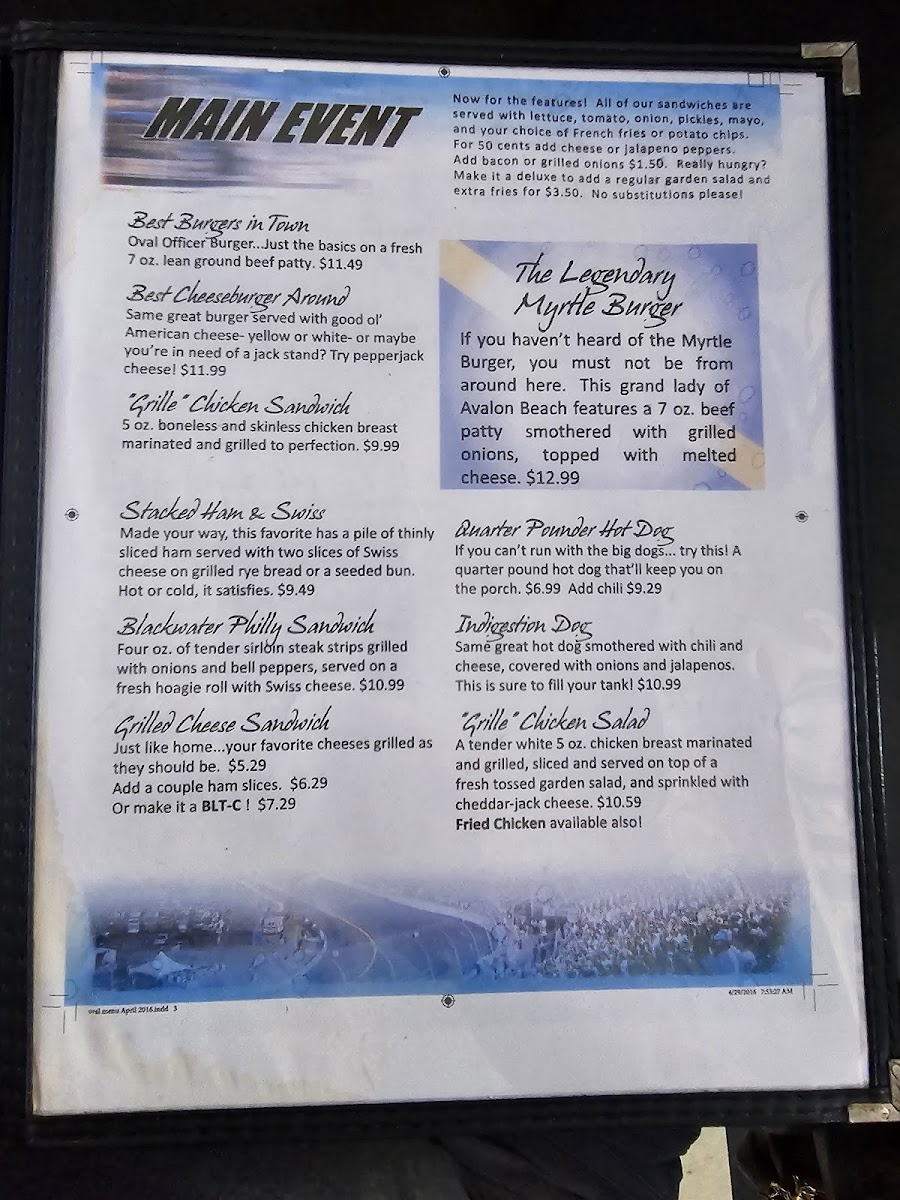 MAIN EVENT
Now for the features! All of our sandwiches are
served with lettuce, tomato, onion, pickles, mayo,
and your choice of French fries or potato chips.
For 50 cents add cheese or jalapeno peppers.
Add bacon or grilled onions $1.50. Really hungry?
Make it a deluxe to add a regular garden salad and
extra fries for $3.50. No substitutions please!
Best Burgers in Town
Oval Officer Burger...Just the basics on a fresh
7 oz. lean ground beef patty. $11.49
Best Cheeseburger Around
Same great burger served with good ol'
American cheese- yellow or white- or maybe
you're in need of a jack stand? Try pepperjack
cheese! $11.99
"Grille" Chicken Sandwich
5 oz. boneless and skinless chicken breast
marinated and grilled to perfection. $9.99
The Legendary
Myrtle Burger
If you haven't heard of the Myrtle
Burger, you must not be from
around here. This grand lady of
Avalon Beach features a 7 oz. beef
patty smothered with grilled
onions, topped with melted
cheese. $12.99
Stacked Ham & Swiss
Made your way, this favorite has a pile of thinly
sliced ham served with two slices of Swiss
cheese on grilled rye bread or a seeded bun.
Hot or cold, it satisfies. $9.49
Blackwater Philly Sandwich
Four oz. of tender sirloin steak strips grilled
with onions and bell peppers, served on a
fresh hoagie roll with Swiss cheese. $10.99
Grilled Cheese Sandwich
Just like home...your favorite cheeses grilled as
they should be. $5.29
Add a couple ham slices. $6.29
Or make it a BLT-C ! $7.29
Quarter Pounder Hot Dog
If you can't run with the big dogs... try this! A
quarter pound hot dog that'll keep you on
the porch. $6.99 Add chili $9.29
Indigestion Dog
Same great hot dog smothered with chili and
cheese, covered with onions and jalapenos.
This is sure to fill your tank! $10.99
"Grille" Chicken Salad
A tender white 5 oz. chicken breast marinated
and grilled, sliced and served on top of a
fresh tossed garden salad, and sprinkled with
cheddar-jack cheese. $10.59
Fried Chicken available also!
oval menu April 2016.indd 3
4/29/2016 7:53:27 AM